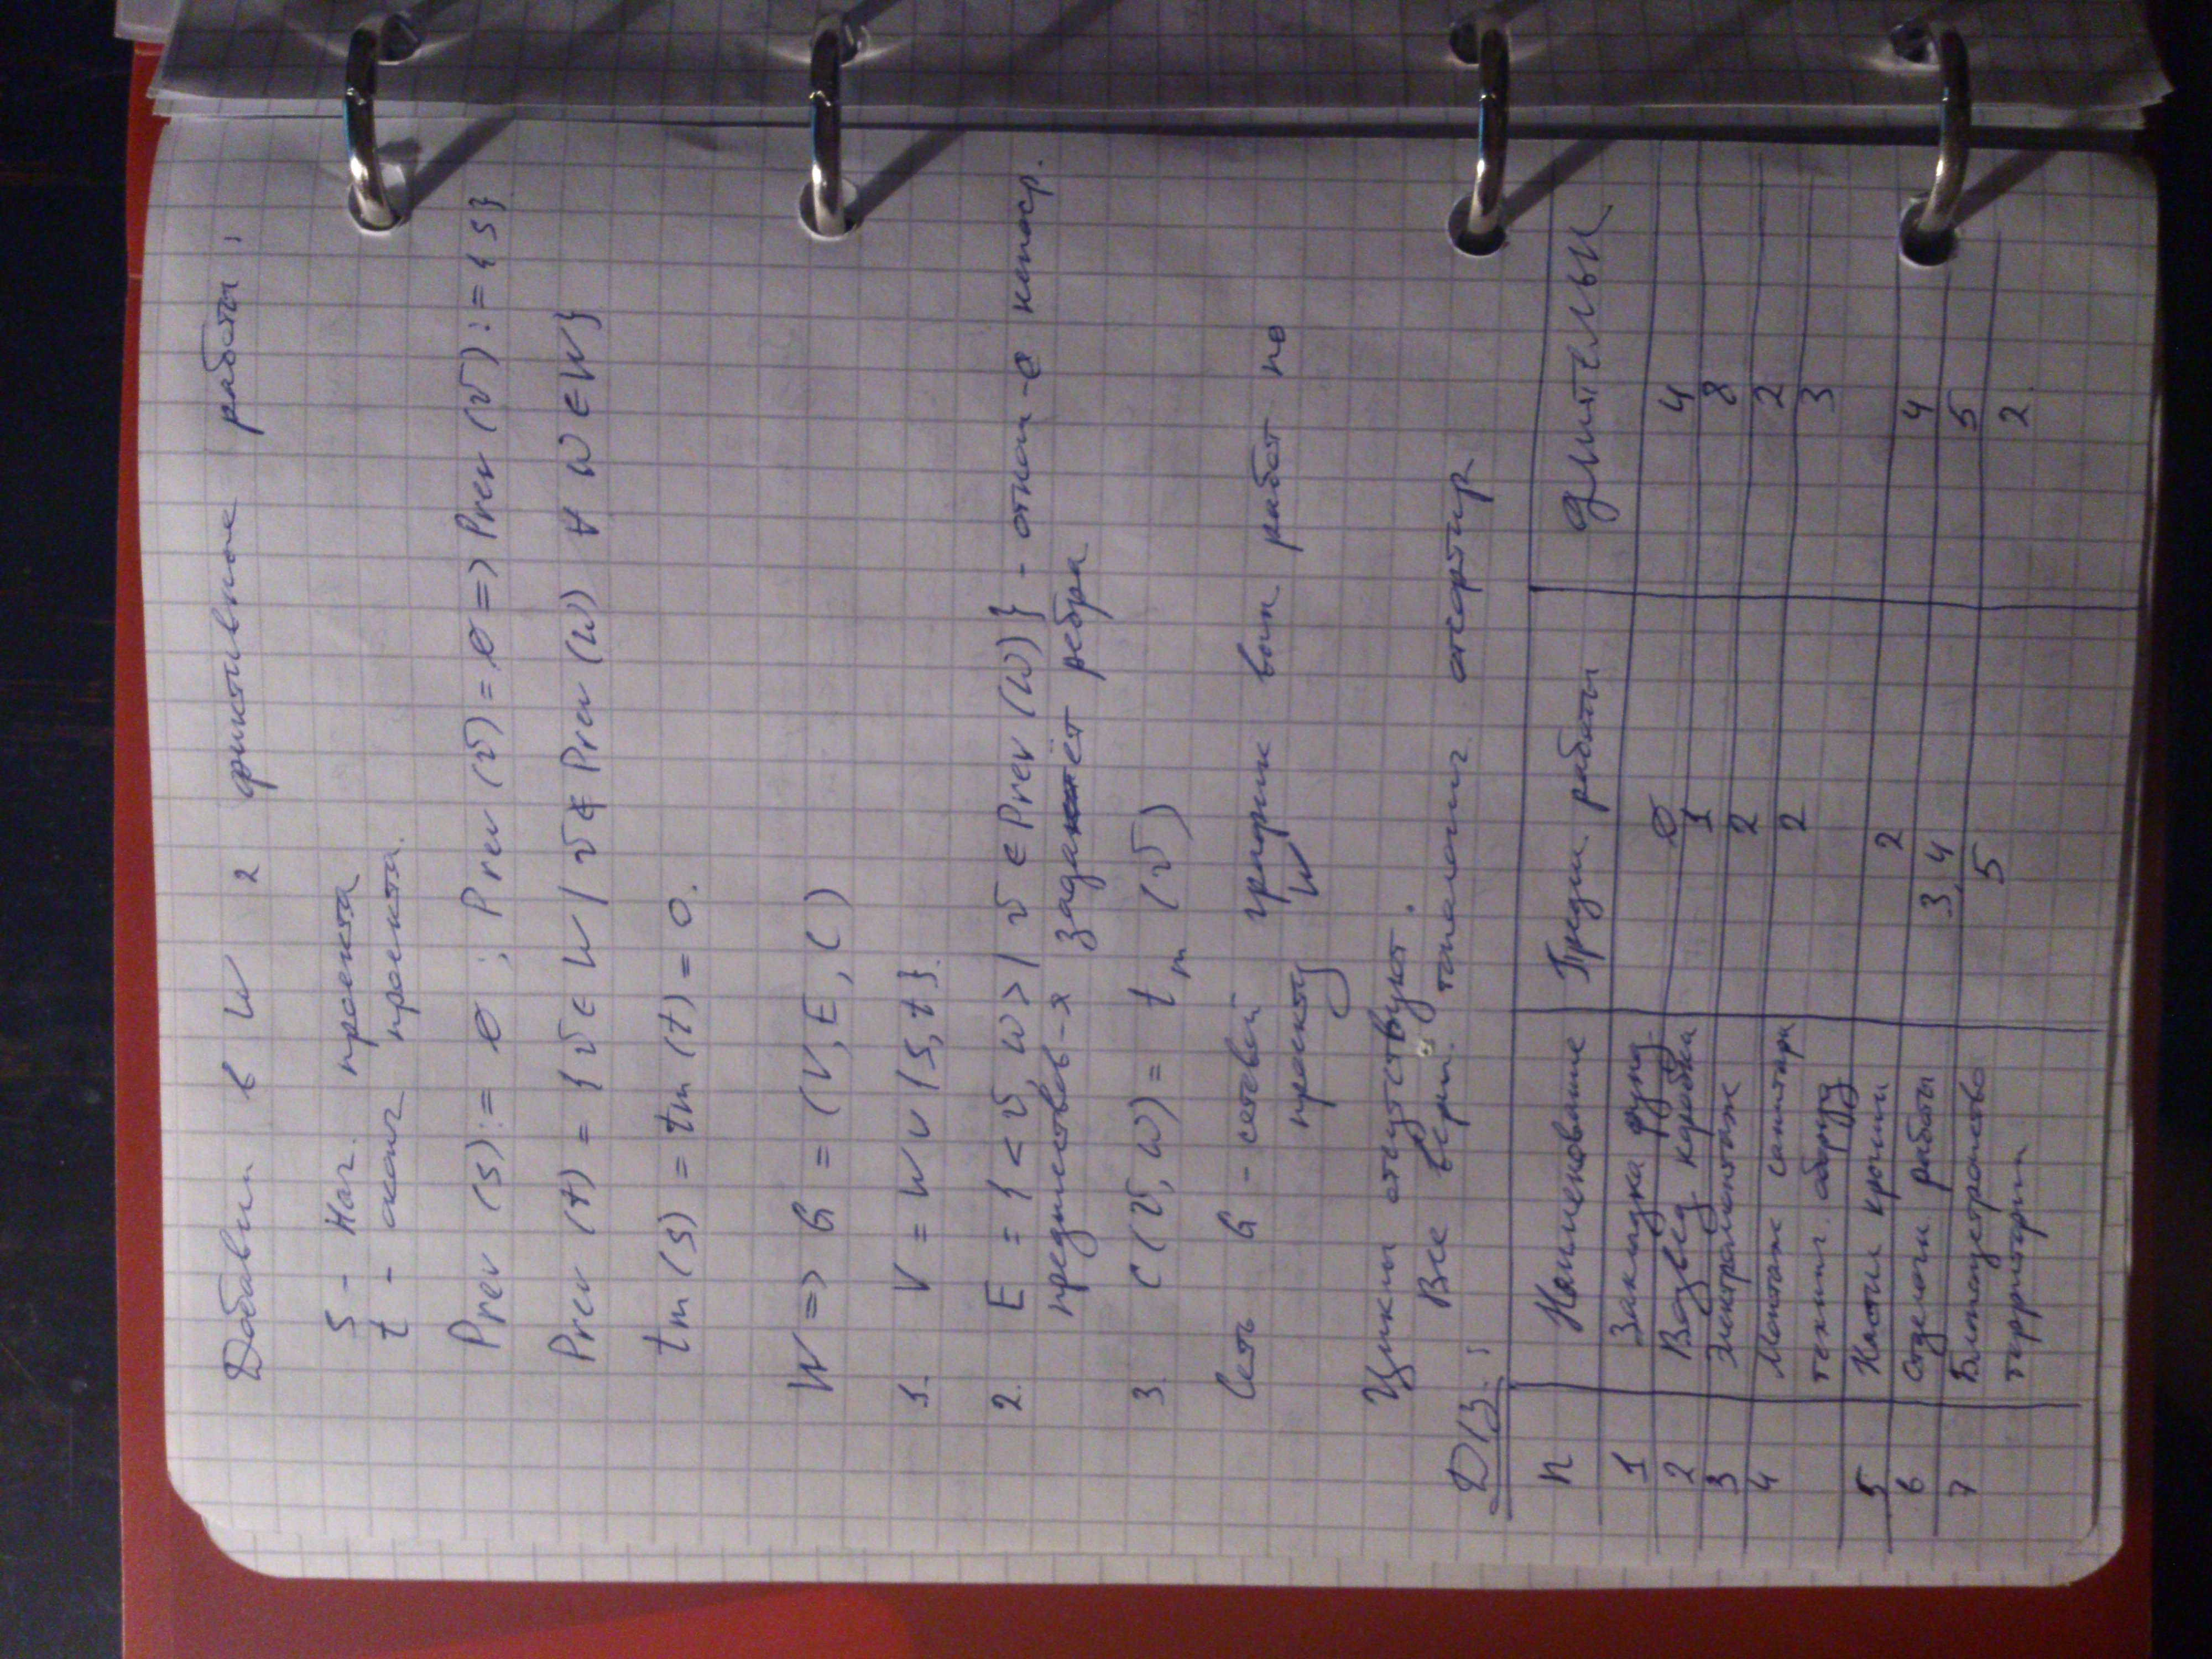 Добавим в W 2 фиктивные работы:
s - нач. проекта
t - оконч проекта.
Prev (s) := ∅ ; Prev (v) = ∅ => Prev (v) := {s}
Prev (t) = {v ∈ W | v ∉ Prev (w) ∀ w ∈ W}
tm (s) = tm (t) = 0.
W => G = (V, E, C)
1. V = W ∪ {s, t}.
2. E = {<v, w> | v ∈ Prev (w)} - отнош-е непоср.
предшествов-я задаёт ребра
3. C (v, w) = tm (v)
Сеть G - сетевой график вып работ по
проекту W
Циклы отсутствуют.
Все верш. топологич. отсортир
ДПЗ:
n Наименование Предш. работы Длительн
1 Закладка фунд ∅ 4
2 Возвед коробки 1 8
3 Электромонтаж 2 2
4 Монтаж санитарн 2 3
технич. оборуд
5 Настил крыши 2 4
6 Отделочн работы 3,4 5
7 Благоустройство 5 2
территории